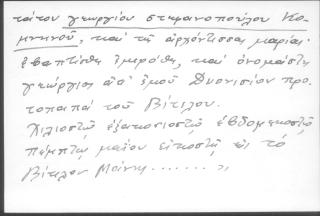 τάτου γεωργίου στεφανοπούλου Κο-
μνηνοῦ, καὶ τῆ ἀρχόντισσα μαρία
ἐβαπτίσθη ἡμερόθη, καὶ ὀνομάστη
γεώργιος ἀπ' ἐμοῦ Διονισίου πρω-
τοπαπᾶ τοῦ Βίτιλου.
Χιλιοστῷ ἑξακοσιοστῷ ἑβδομηκοστῷ
πέμπτῳ μαΐου εἰκοστῇ εἰς τὸ
Βίτιλον Μάνης ........ »